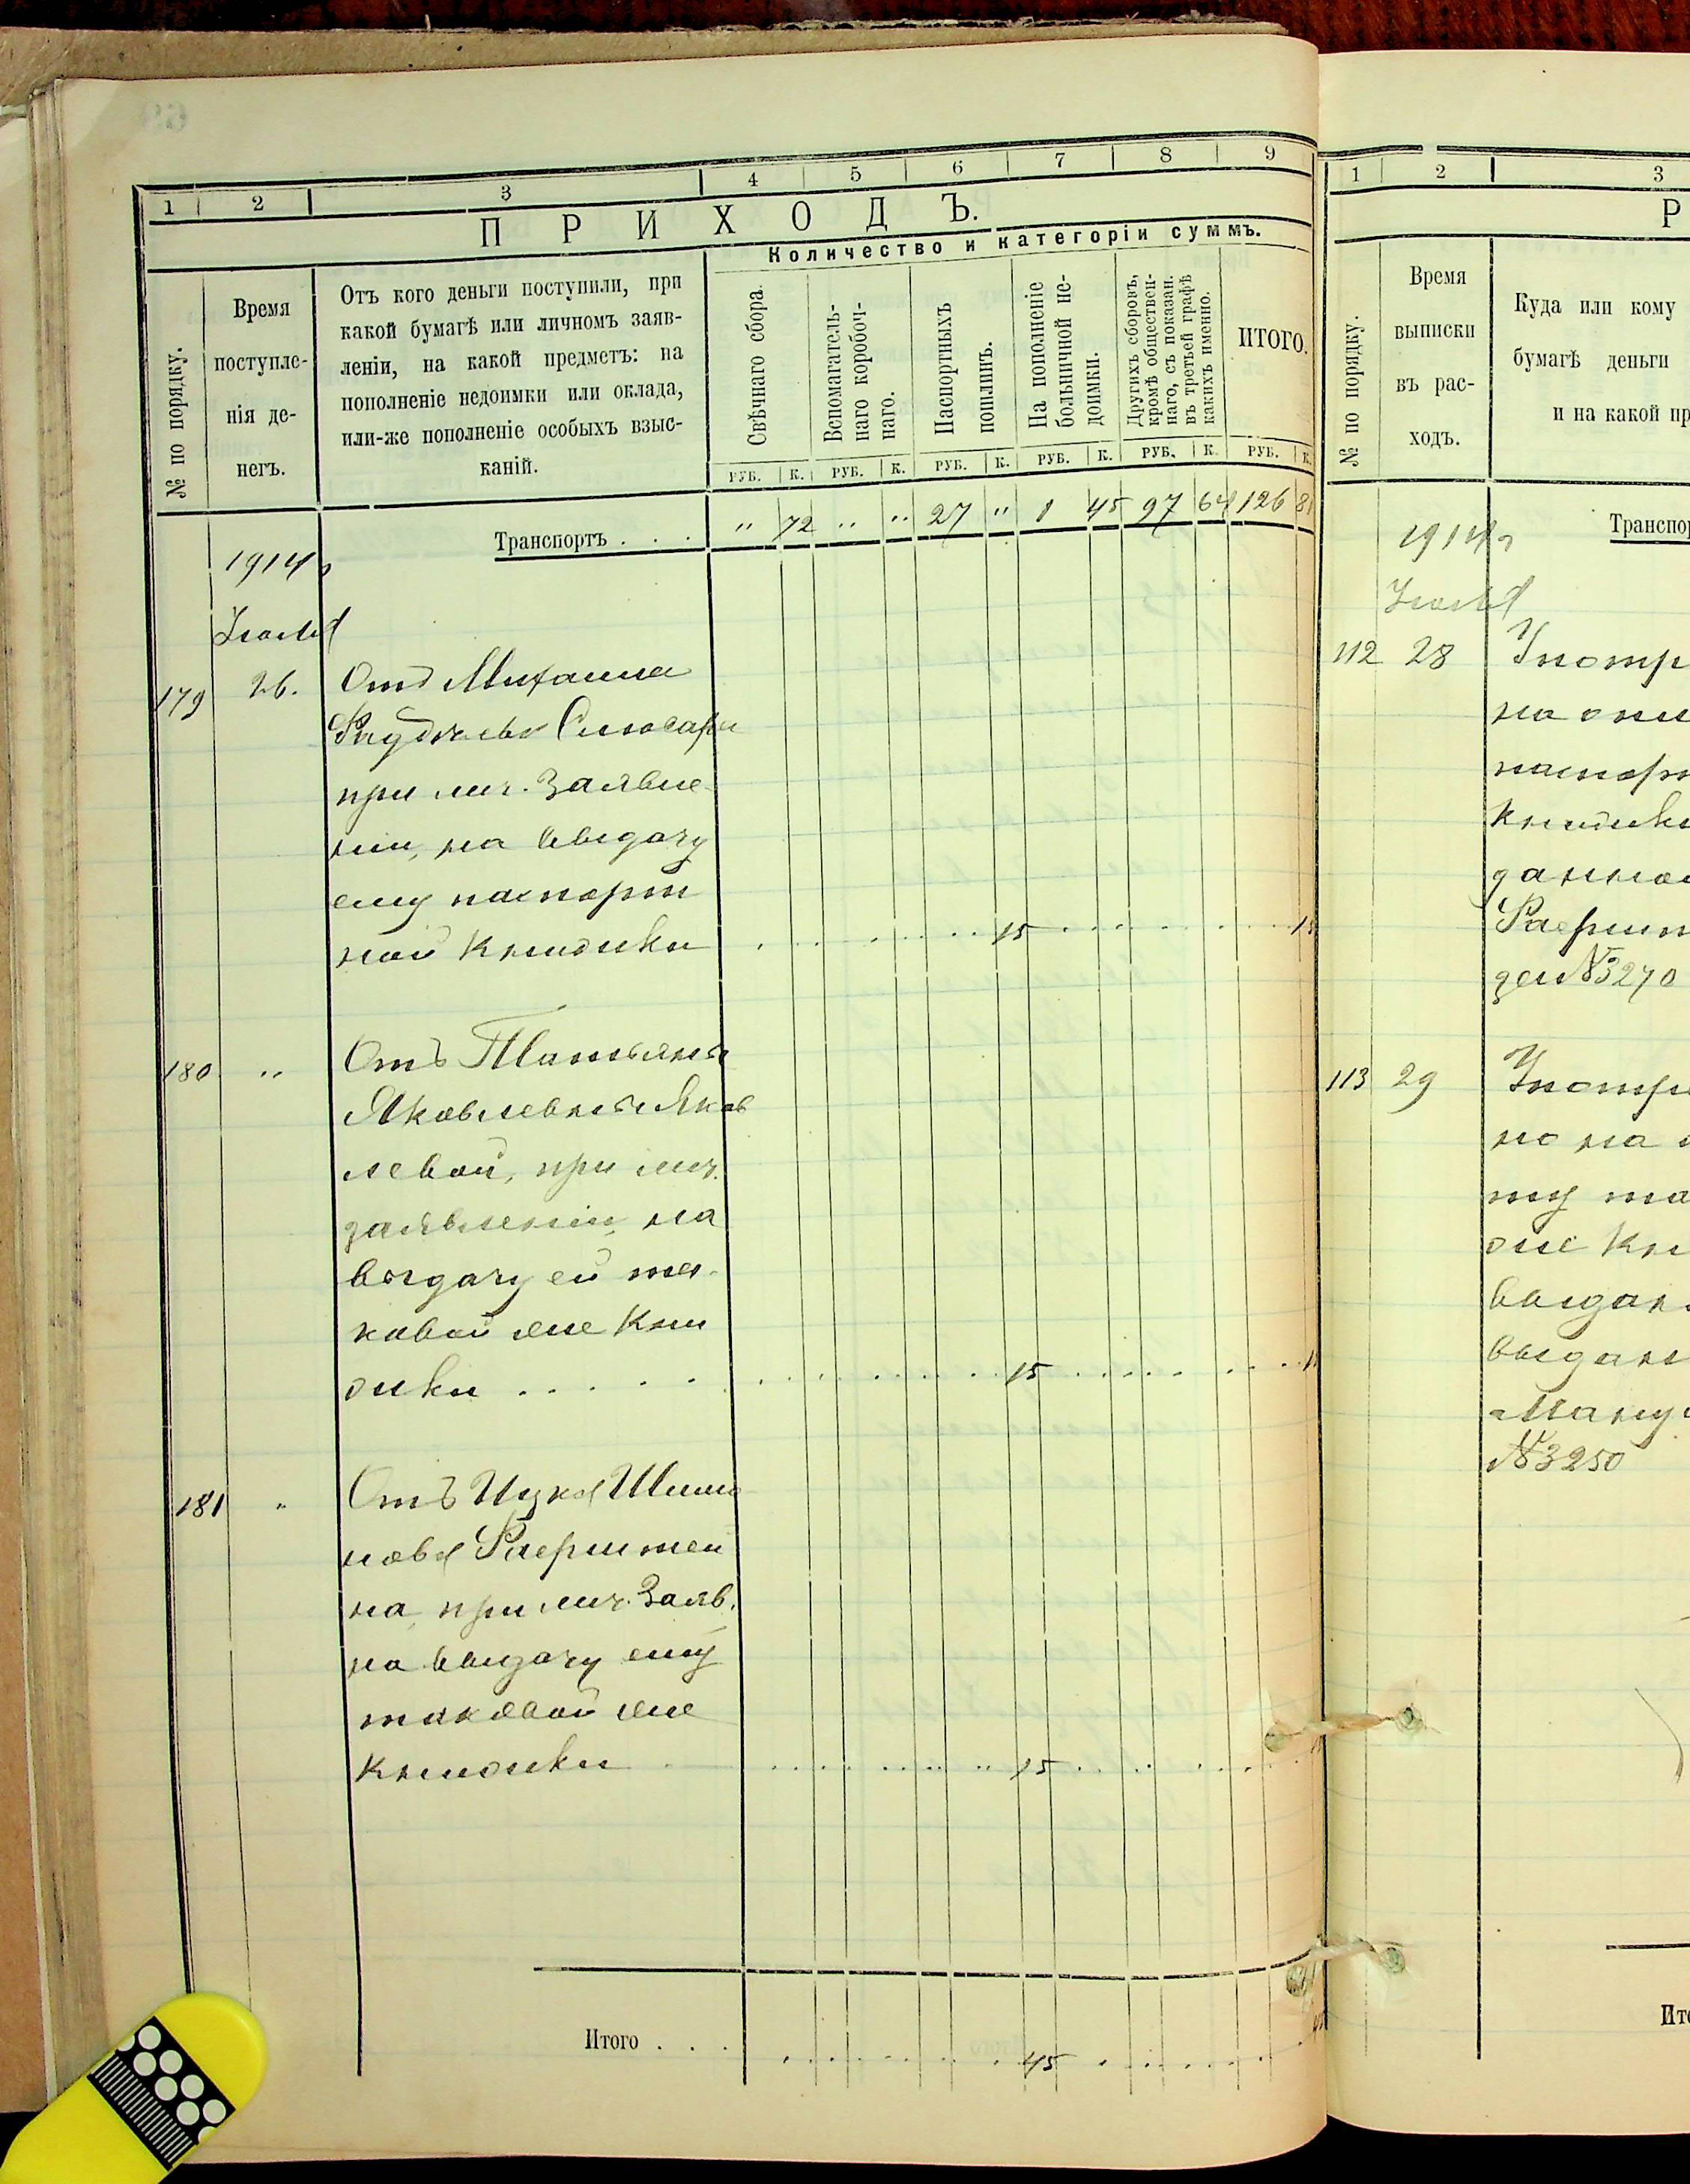 1 2 3 4 5 6 7 8 9
ПРИХОДЪ.
Количество и категоріи суммъ.
№ по порядку.
Время
поступле-
нія де-
негъ.
Отъ кого деньги поступили, при
какой бумагѣ или личномъ заяв-
леніи, на какой предметъ: на
пополненіе недоимки или оклада,
или-же пополненіе особыхъ взыс-
каній.
Свѣчнаго сбора.
Вспомагатель-
наго коробоч-
наго.
Паспортныхъ
пошлинъ.
На пополненіе
больничной не-
доимки.
Другихъ сборовъ,
кромѣ обществен-
наго, съ показан.
въ третьей графѣ
какихъ именно.
ИТОГО.
РУБ. К. РУБ. К. РУБ. К. РУБ. К. РУБ. К. РУБ. К.
Транспортъ . . . " 72 " " 27 " 1 45 97 64 126 81
1914 г
179 26. Отъ Михаила
Слюсаря
при лич. Заявле
ніи, на выдачу
ему паспорт
ной Книжки 15 15
180 " Отъ Татьяны
Яковлевны Яков
левой, при лич.
заявленіи, на
выдачу ей та-
ковой же Кни
жки . . . . . 15
181 " Отъ Ицка
нова Раершտей
на, при лич. Заяв.
на выдачу ему
таковой же
Книжки 15
Итого . . . 45
1 2 3
Р
№ по порядку.
Время
выписки
въ рас-
ходъ.
Куда или кому
бумагѣ деньги
и на какой пр
Транспор
1914 г
112 28 Употр
на
паспорт
Книжки
данной
№ 3270
113 29 Употре
но на
ту та
же Кн
выдан
№ 3250
Ито